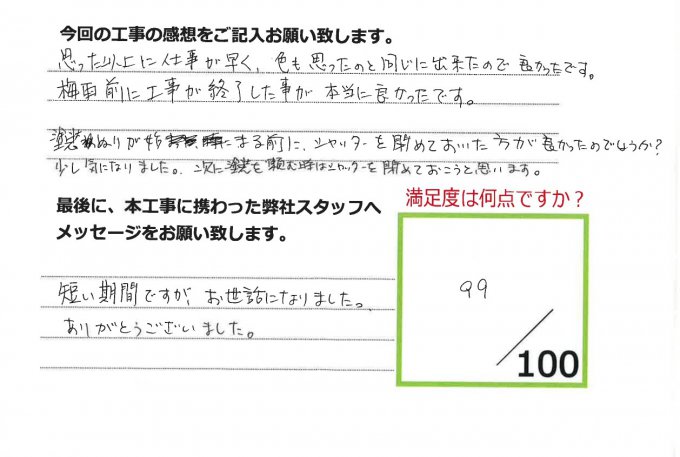 今回の工事の感想をご記入お願い致します。
思った以上に仕事が早く、色も思ったのと同じに出来たので良かったです。
梅雨前に工事が終了した事が本当に良かったです。
塗装ぬりが始まる前に、シャッターを閉めておいた方が良かったのでしょうか?
少し気になりました。次に塗装を頼む時はシャッターを閉めておこうと思います。
最後に、本工事に携わった弊社スタッフへ
メッセージをお願い致します。
満足度は何点ですか?
短い期間ですが、お世話になりました。
ありがとうございました。
99
/100